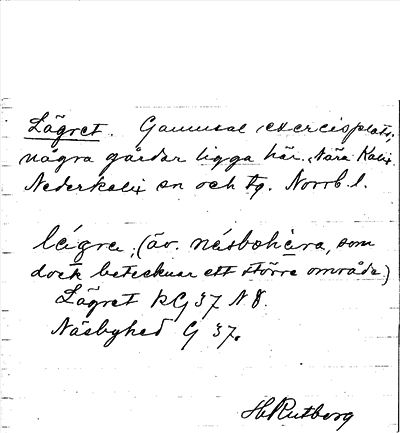 Lägret. Gammal exercisplats,
några gårdar ligga här. Nära Kalix.
Nederkalix sn och tg. Norrb. l.
légre, (äv. nésbohèra, som
dock betecknar ett större område)
Lägret RG 37 N 8.
Näsbyhed G 37.
H Rutberg